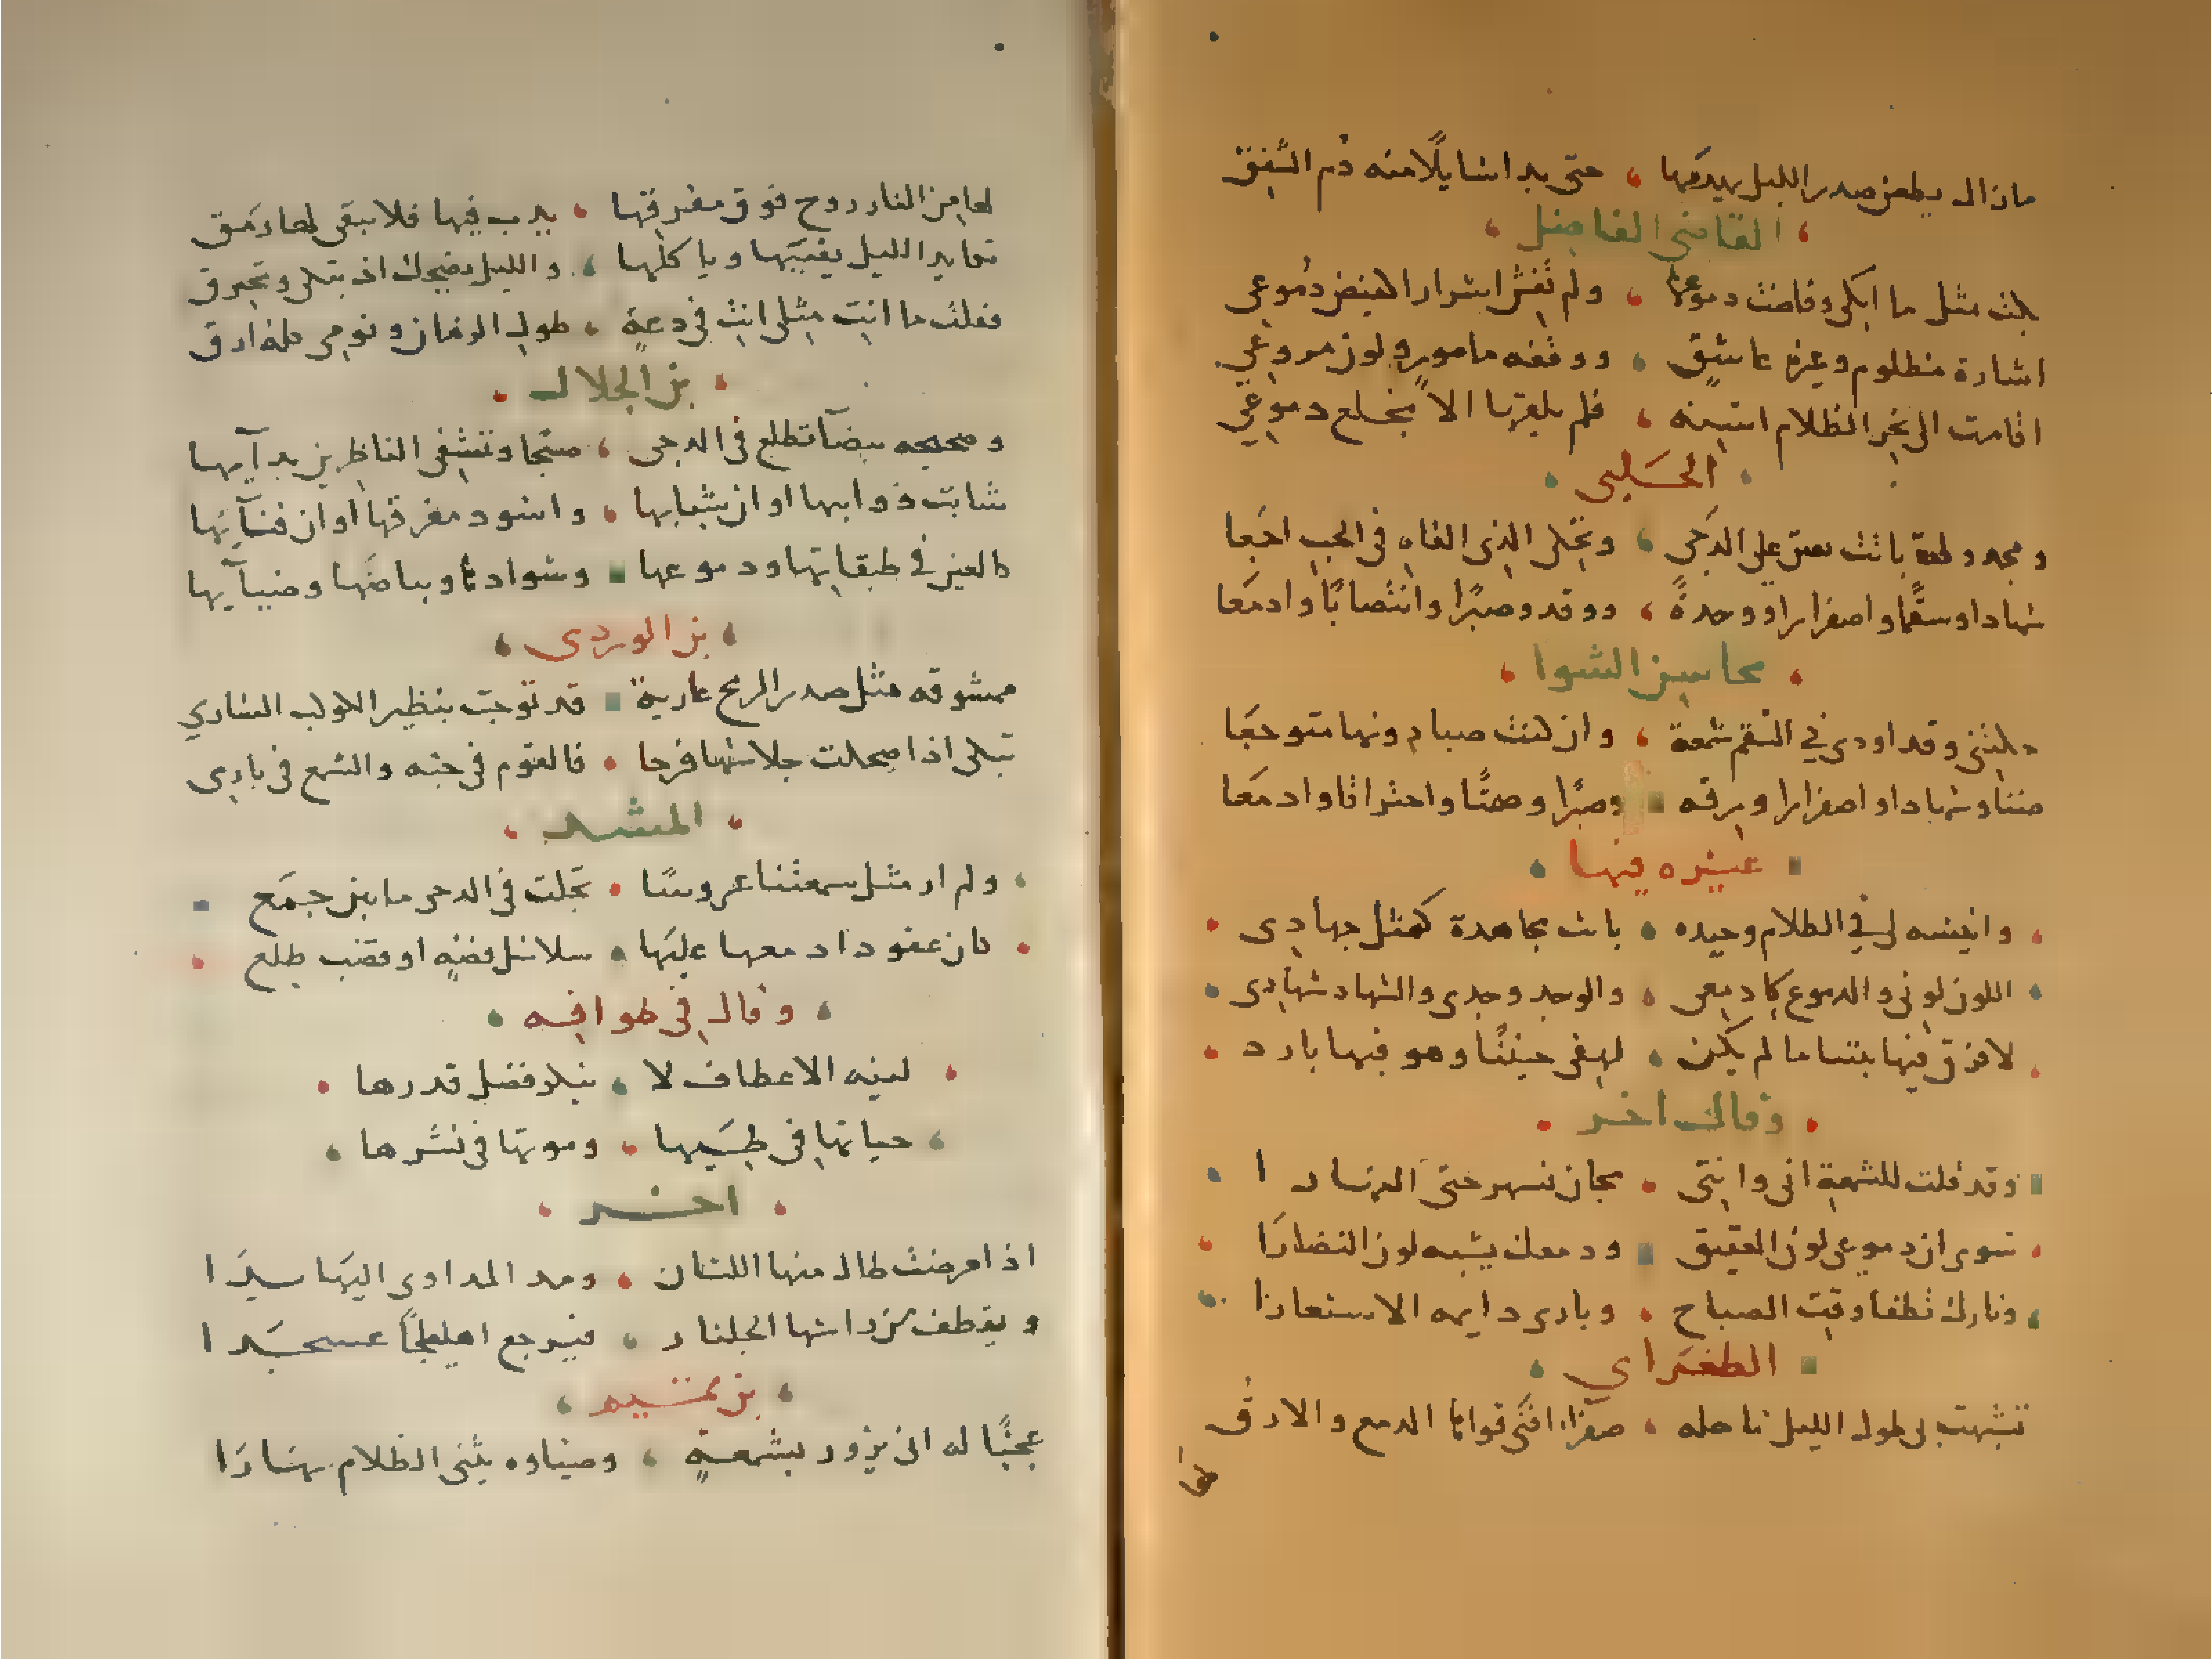 مازال يطعن صدر الليل يهدمها حتى بدا سايلا منه دم الشفق
القاضي الفاضل
بكت مثل ما ابكي وفاضت دموعها ولم تفش اسرارا كفيض دموعي
اشارة مظلوم وعبرة عاشق ووقفه مامور ولون مروعي
اقامت الى بحر الظلام فلم بها الا دموعي
الحلبي
باتت على الدجى وتحكي الذي القاه في الحب اجمعا
سهادا وسقما واصفرارا ووحدة ووقد وصبرا وانتصابا وادمعا
محاسن الشوا
حكتني وقد اودى في السقم شمعة وان كنت صبا دونها متوجعا
ضنا وسهادا واصفرارا ورقه وصبرا وصمتا واحتراقا وادمعا
غيره فيها
وانيسه لي في الظلام وحيده باتت مجاهدة كمثل جهادي
اللون لوني والدموع كادمعي والوجد وجدي والسهاد سهادي
لا فرق فيها بيننا ما لم يكن لهفي خفيا وهو فيها باد
وقال اخر
وقد قلت للشمعة اني وانتي بجان نسهر حتى النهارا
سوى ان دموعي لون العقيق ودمعك يشبه لون النضارا
ونارك تطفا وقت الصباح وناري دايمه الاستعارا
الطغراي
تشبهت بي طول الليل ناحله صفراء افنى قواها الدمع والارق
لها
لها من النار روح فوق مفرقها يدب فيها فلا يبقى لها رمق
تحارب الليل يفنيها وياكلها والليل يضحك اذ تبكي وتحترق
فقلت ما انت مثلي انت في دعة طول الزمان ونومي كله ارق
بن الجلال
وصحيحه بيضا تطلع في الدجى صبحا وتشفي الناظرين بدايها
شابت ذوايبها اوان شبابها واسود مفرقها اوان فنايها
كالعين في طبقاتها ودموعها وسوادها وبياضها وضيايها
بن الوردي
ممشوقه مثل صدر الرمح عارية قد توجت بنظير الكوكب الساري
تبكي اذا ضحكت جلاسها فرحا فالقوم في جنه والشمع في نار
المشد
ولم ار مثل شمعتنا عروسا تجلت في الدجى ما بين جمع
كان عقود ادمعها عليها سلاسل فضه او قضب طلع
وقال في طوافه
لينه الاعطاف لا ينكر فضل قدرها
حياتها في طيها وموتها في نشرها
اخر
اذا مرضت طال منها اللسان ومد المداوي اليها يدا
ويقطف من راسها الجلنار فيرجع اهليلجا عسجدا
بن تميم
عجبا له اني يزور بشمعة وضياوه يثني الظلام نهارا